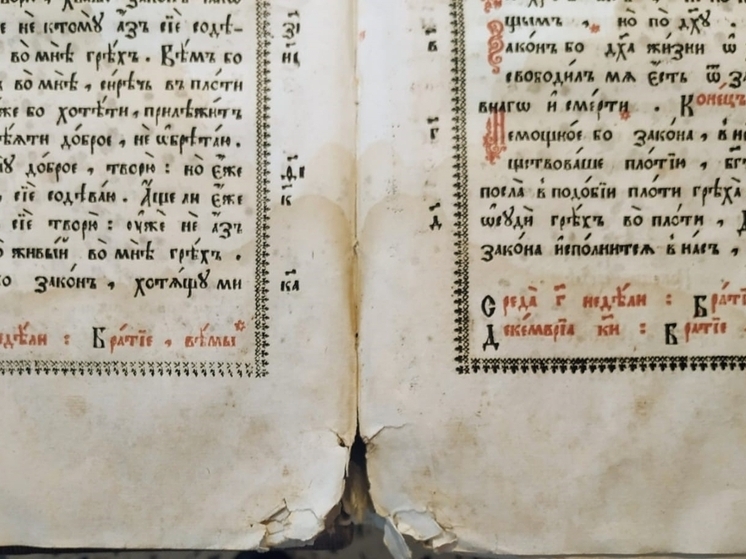 не ктомꙋ̀ а҆́зъ сїѐ содѣ́-
во мнѣ̀ грѣ́хъ . Вѣ́мъ бо
во мнѣ̀ , си́рѣчь въ пло́ти
же бо хотѣ́ти , прилежи́тъ
доброе , не ѡ҆брѣта́ю .
доброе , творю̀ : но є҆́же
сїѐ содѣва́ю . А҆́ще ли є҆́же
сїѐ творю̀ : ᲂу҆жѐ не а҆́зъ
живы́й во мнѣ̀ грѣ́хъ .
зако́нъ , хотѧ́щꙋ ми
недѣ́ли : Бра́тїе , вѣ́мы
зі
иі
ѳі
к
ка
в
г
д
щымъ , но по дх҃ꙋ .
Зако́нъ бо дх҃а жи́зни ѡ
свободи́лъ мѧ є҆́сть ѿ за
внагѡ и҆ сме́рти . Коне́цъ
Немощно́е бо зако́на , в не
ществова́ше пло́тїю , бг҃
посла̀ в подо́бїи пло́ти грѣха̀
ѡ҆сꙋдѝ грѣ́хъ во пло́ти ,
зако́на и҆спо́лнитсѧ в на́съ ,
Среда̀ г҃ недѣ́ли : Бра́тїе
Декемврїа ки : Братїе